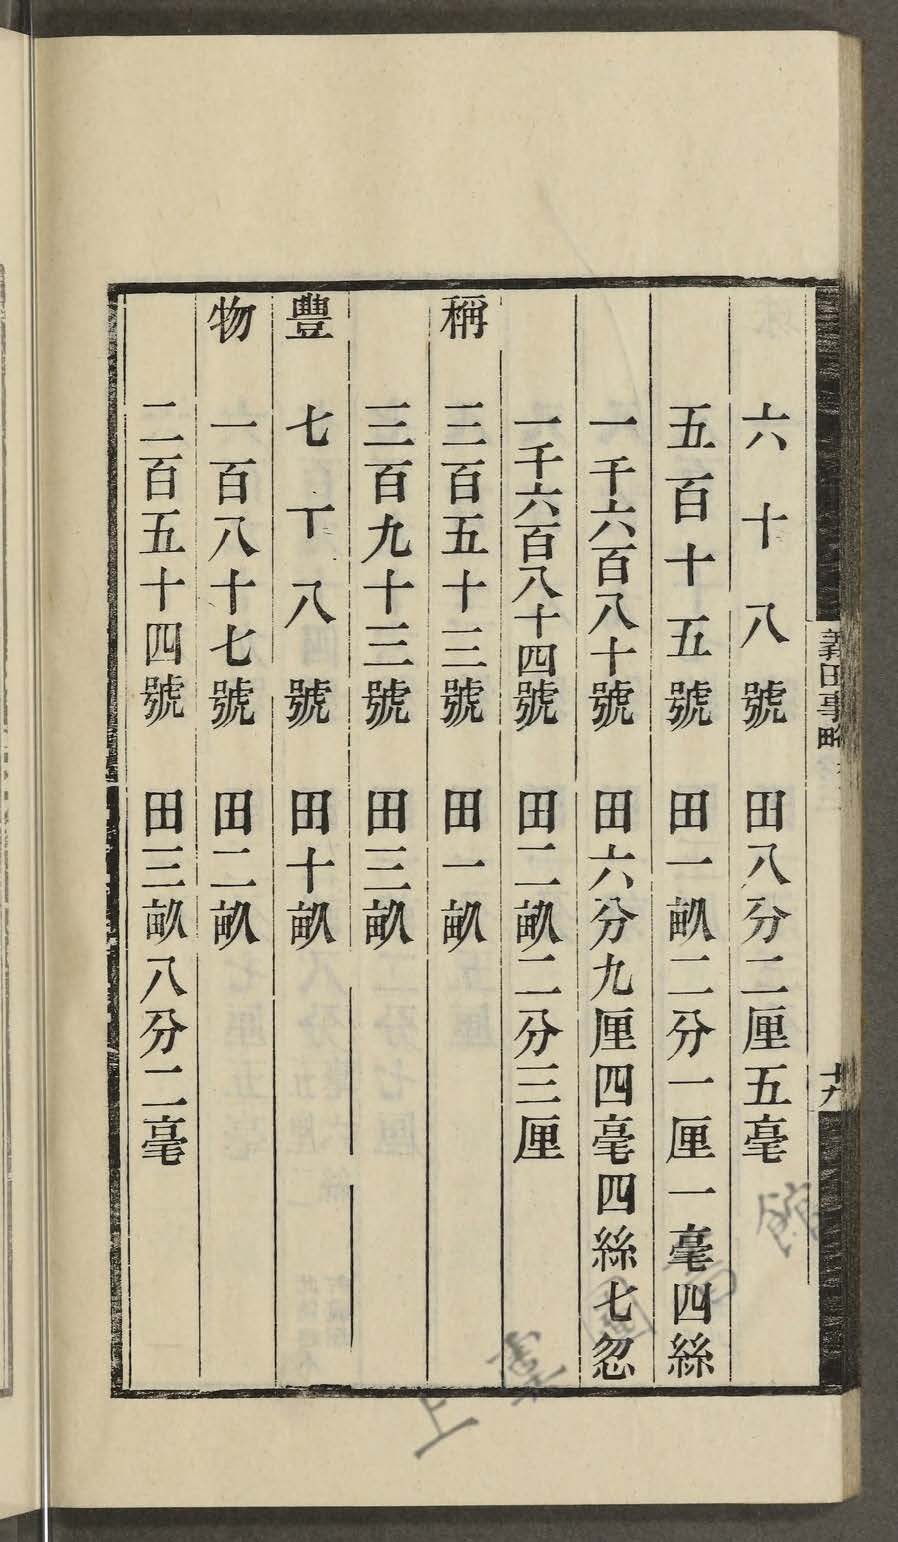 六十八號　田八分二厘五毫
五百十五號　田一畝二分一厘一毫四絲
一千六百八十號　田六分九厘四毫四絲七忽
一千六百八十四號　田二畝二分三厘
稱　三百五十三號　田一畝
三百九十三號　田三畝
豐　七十八號　田十畝
物　一百八十七號　田二畝
二百五十四號　田三畝八分二毫
義田事略